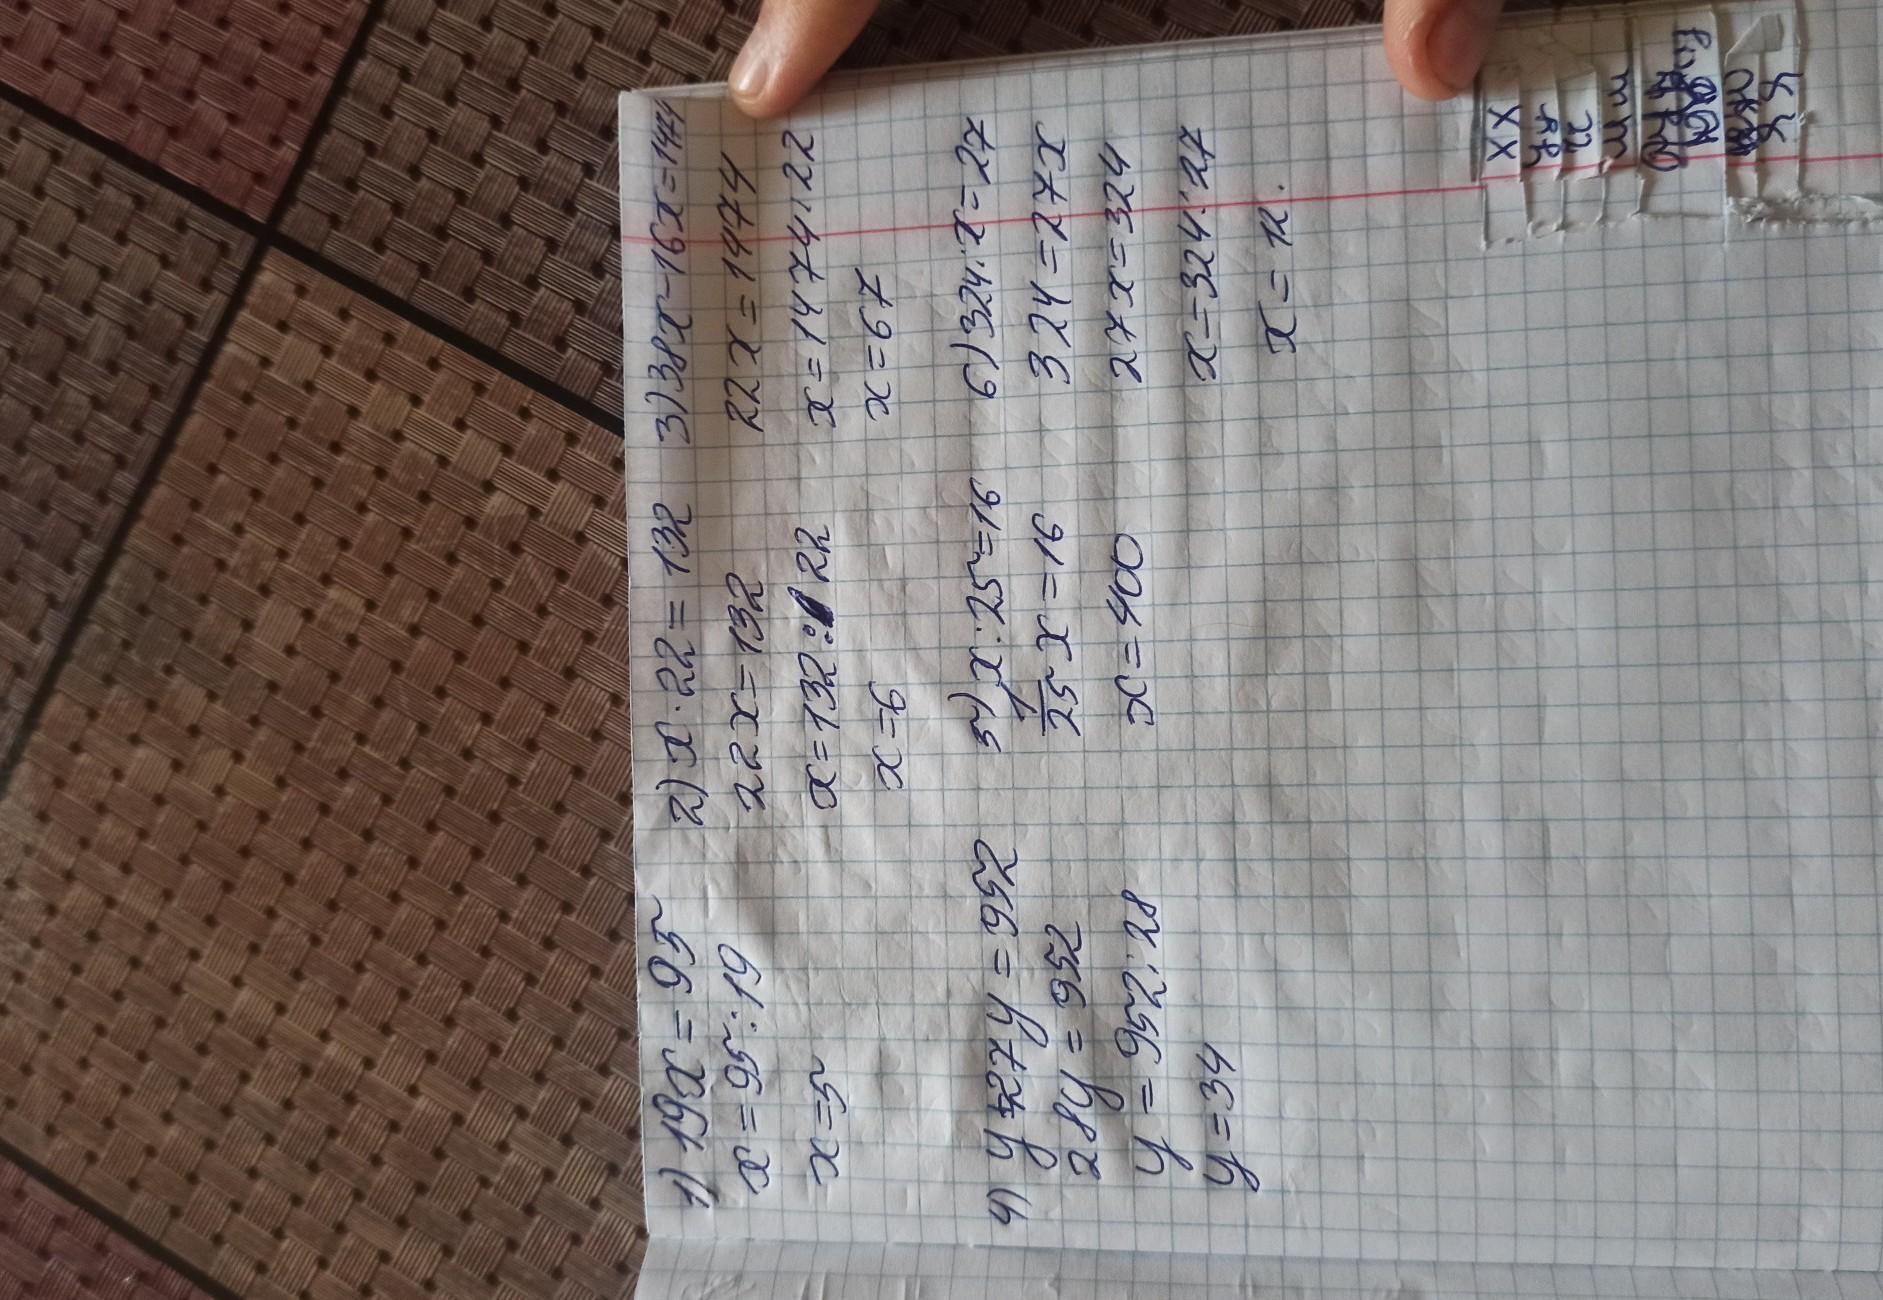 1) 19x = 95
x = 95 : 19
x = 5
2) x · 22 = 132
22x = 132
x = 132 : 22
x = 6
3) 38x - 16x = 1474
22x = 1474
x = 1474 : 22
x = 67
4) y + 27y = 952
28y = 952
y = 952 : 28
y = 34
5) x : 25 = 16
1/25 x = 16
x = 400
6) 324 : x = 27
324 = 27x
27x = 324
x = 324 : 27
x = 12.